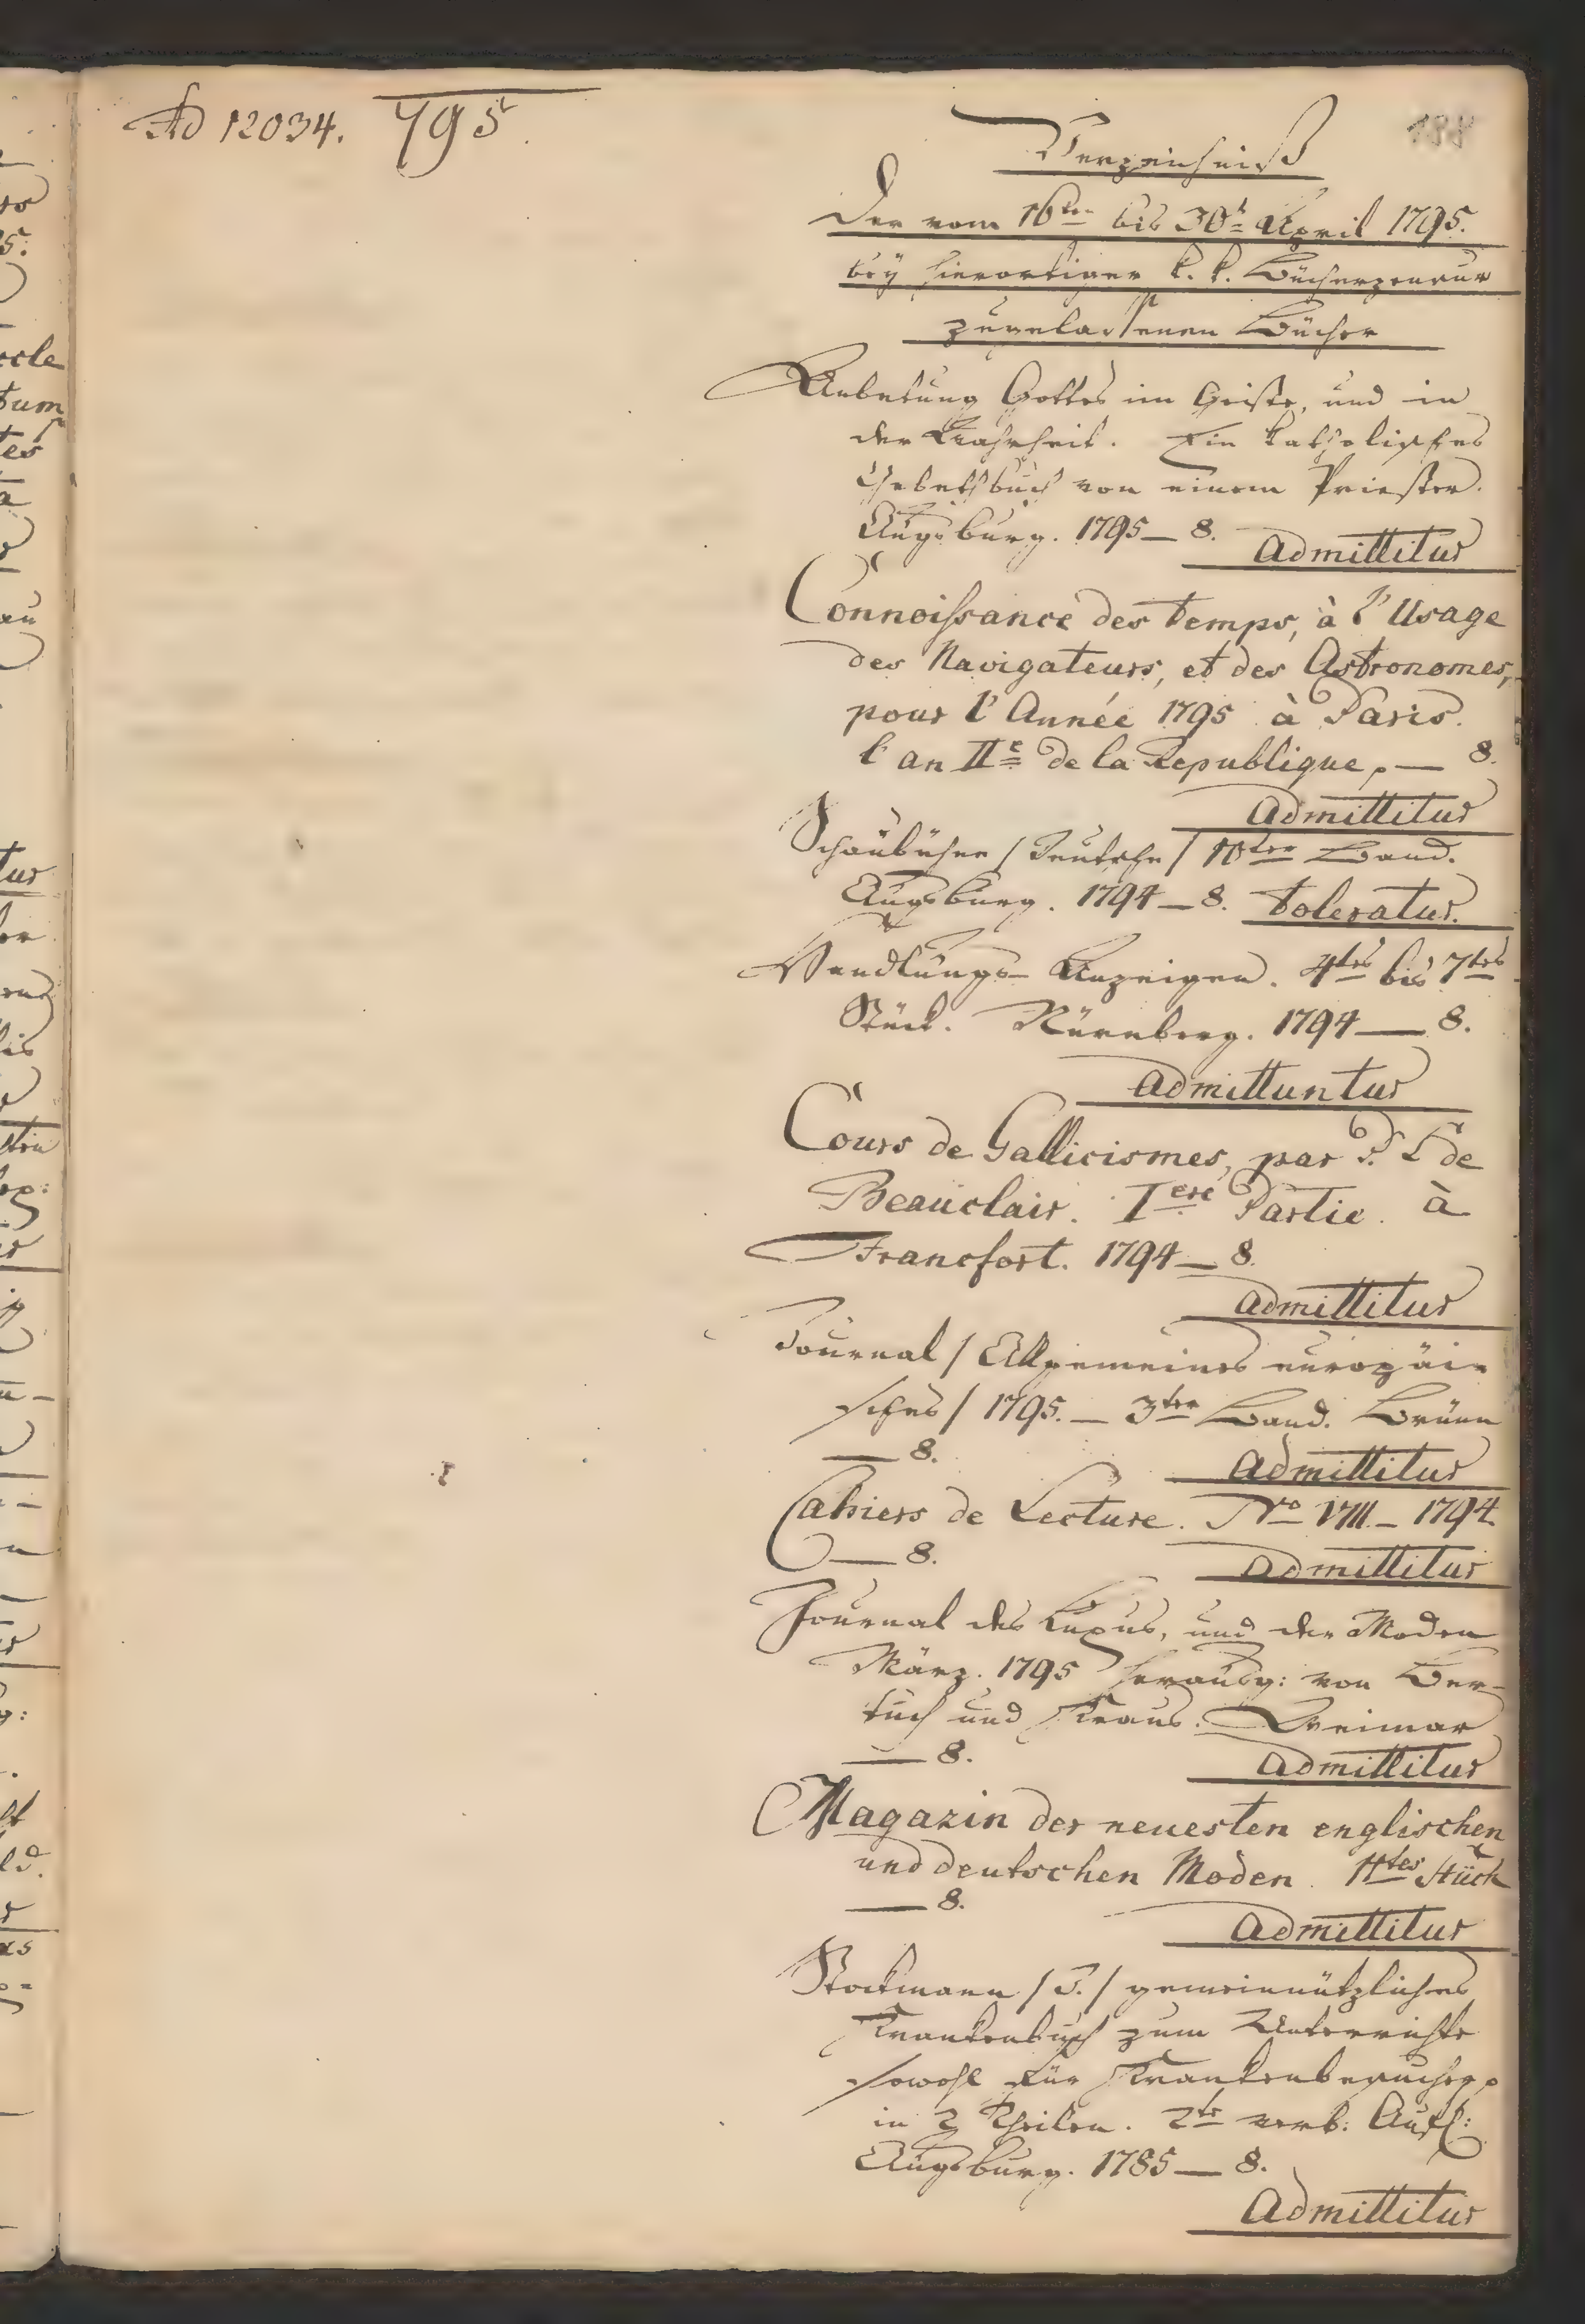 Ad 12034. 795.
188
Verzeichniß
Der vom 16ten bis 30t April 1795.
bey hierortiger k. k. Bücherzensur
zugelassenen Bücher
Anbetung Gottes im Geiste, und in
der Wahrheit. Ein katholisches
Gebethbuch von einem Priester.
Augsburg. 1795 — 8. Admittitur
Connoissance des temps, à l'Usage
des Navigateurs, et des Astronomes,
pour l'Année 1795 à Paris.
l'an IIe de la Republique, — 8.
Admittitur
Schaubühne / Deutsche / 10ter Band.
Augsburg. 1794 — 8. Toleratur.
Handlungs-Anzeigen. 4tes bis 7tes
Stück. Nürnberg. 1794 — 8.
Admittuntur
Cours de Gallicismes, par P. L de
Beauclair. Iere Partie. à
Francfort. 1794 — 8.
Admittitur
Journal / Allgemeines europäi-
sches / 1795. — 3ter Band. Brünn
— 8. Admittitur
Cahiers de Lecture. Nro VIII — 1794.
— 8. Admittitur
Journal des Luxus, und der Moden
März. 1795 herausg: von Ber-
tuch und Kraus. Weimar
— 8. Admittitur
Magazin der neuesten englischen
und deutschen Moden. 11tes Stück
— 8. Admittitur
Stockmann / J. / gemeinnützliches
Krankenbuch zum Unterrichte
sowohl für Krankenbesucher
in 2 Theilen. 2te verb: Aufl:
Augsburg. 1785 — 8.
Admittitur